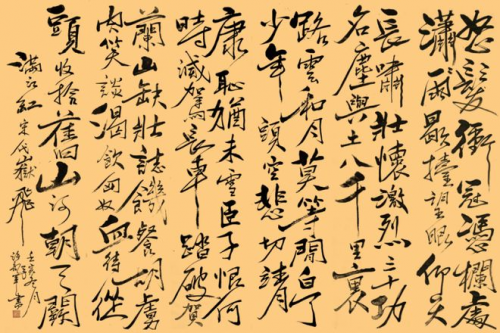 怒髮衝冠憑欄處
瀟雨歇擡望眼仰天
長嘯壯懷激烈三十功
名塵與土八千里
路雲和月莫等閒白了
少年頭空悲切靖
康恥猶未雪臣子恨何
時滅駕長車踏破賀
蘭山缺壯誌饑餐胡虜
肉笑談渴飲匈奴血待從
頭收拾舊山河朝天闕
滿江紅 宋代嶽飛
月
書